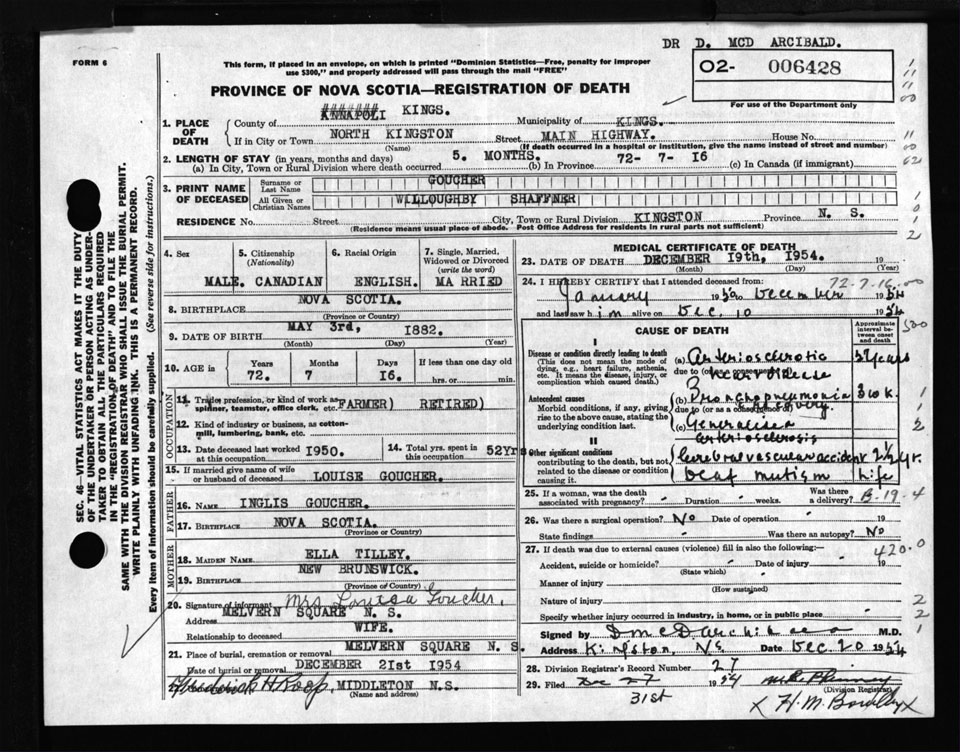 DR D. MCD ARCIBALD.
FORM 6
This form, if placed in an envelope, on which is printed "Dominion Statistics—Free, penalty for improper
use $300," and properly addressed will pass through the mail "FREE"
02- 006428
For use of the Department only
PROVINCE OF NOVA SCOTIA—REGISTRATION OF DEATH
1. PLACE OF DEATH
County of ANNAPOLI KINGS. Municipality of KINGS.
If in City or Town NORTH KINGSTON Street MAIN HIGHWAY. House No.
(Name) (If death occurred in a hospital or institution, give the name instead of street and number)
2. LENGTH OF STAY (in years, months and days) 5. MONTHS. 72- 7- 16
(a) In City, Town or Rural Division where death occurred (b) In Province (c) In Canada (if immigrant)
3. PRINT NAME OF DECEASED
Surname or Last Name GOUCHER
All Given or Christian Names WILLOUGHBY SHAFFNER
RESIDENCE No. Street City, Town or Rural Division KINGSTON Province N. S.
(Residence means usual place of abode. Post Office Address for residents in rural parts not sufficient)
4. Sex 5. Citizenship (Nationality) 6. Racial Origin 7. Single, Married, Widowed or Divorced (write the word)
MALE. CANADIAN ENGLISH. MA RRIED
8. BIRTHPLACE NOVA SCOTIA.
(Province or Country)
9. DATE OF BIRTH MAY 3rd, 1882.
(Month) (Day) (Year)
10. AGE in Years Months Days If less than one day old
72. 7 16. hrs. or min.
OCCUPATION
11. Trade, profession, or kind of work as spinner, teamster, office clerk, etc. FARMER) RETIRED)
12. Kind of industry or business, as cotton-mill, lumbering, bank, etc.
13. Date deceased last worked at this occupation 1950. 14. Total yrs. spent in this occupation 52Yrs
15. If married give name of wife or husband of deceased LOUISE GOUCHER.
FATHER
16. NAME INGLIS GOUCHER.
17. BIRTHPLACE NOVA SCOTIA.
(Province or Country)
MOTHER
18. MAIDEN NAME ELLA TILLEY.
19. BIRTHPLACE NEW BRUNSWICK.
(Province or Country)
20. Signature of informant Mrs Louisa Goucher.
Address MELVERN SQUARE N. S.
Relationship to deceased WIFE.
21. Place of burial, cremation or removal MELVERN SQUARE N. S.
Date of burial or removal DECEMBER 21st 1954
Frederick H Roop, MIDDLETON N.S.
(Name and address)
MEDICAL CERTIFICATE OF DEATH
23. DATE OF DEATH DECEMBER 19th, 1954. 19
(Month) (Day) (Year)
24. I HEREBY CERTIFY that I attended deceased from: 72-7-16-00
January 1950 to December 1954
and last saw him alive on Dec. 10 1954
500
CAUSE OF DEATH
Approximate interval between onset and death
I
Disease or condition directly leading to death (This does not mean the mode of dying, e.g., heart failure, asthenia, etc. It means the disease, injury, or complication which caused death.)
(a) Arteriosclerotic heart disease
due to (or as a consequence of)
Antecedent causes
Morbid conditions, if any, giving rise to the above cause, stating the underlying condition last
Bronchopneumonia 3 wk.
due to (or as a consequence of)
(c) Generalised arteriosclerosis
II
Other significant conditions contributing to the death, but not related to the disease or condition causing it.
Cerebral vascular accident 2½ yr.
Deaf mutism Life
25. If a woman, was the death associated with pregnancy? Duration weeks. Was there a delivery? B-19-4
26. Was there a surgical operation? No Date of operation 19
State findings Was there an autopsy? No
27. If death was due to external causes (violence) fill in also the following:— 420.0
Accident, suicide or homicide? Date of injury 19
(State which)
Manner of injury
(How sustained)
Nature of injury 2
Specify whether injury occurred in industry, in home, or in public place 2
Signed by D McD Archibald M.D. 1
Address Kingston, NS Date Dec. 20 1954
28. Division Registrar's Record Number 27
29. Filed Dec 27 1954
(Division Registrar)
31st
x H. M. x
SEC. 46—VITAL STATISTICS ACT MAKES IT THE DUTY
OF THE UNDERTAKER OR PERSON ACTING AS UNDER-
TAKER TO OBTAIN ALL THE PARTICULARS REQUIRED
IN THE "REGISTRATION OF DEATH" AND TO FILE THE
SAME WITH THE DIVISION REGISTRAR WHO SHALL ISSUE THE BURIAL PERMIT.
WRITE PLAINLY WITH UNFADING INK. THIS IS A PERMANENT RECORD.
Every item of information should be carefully supplied. (See reverse side for instructions.)